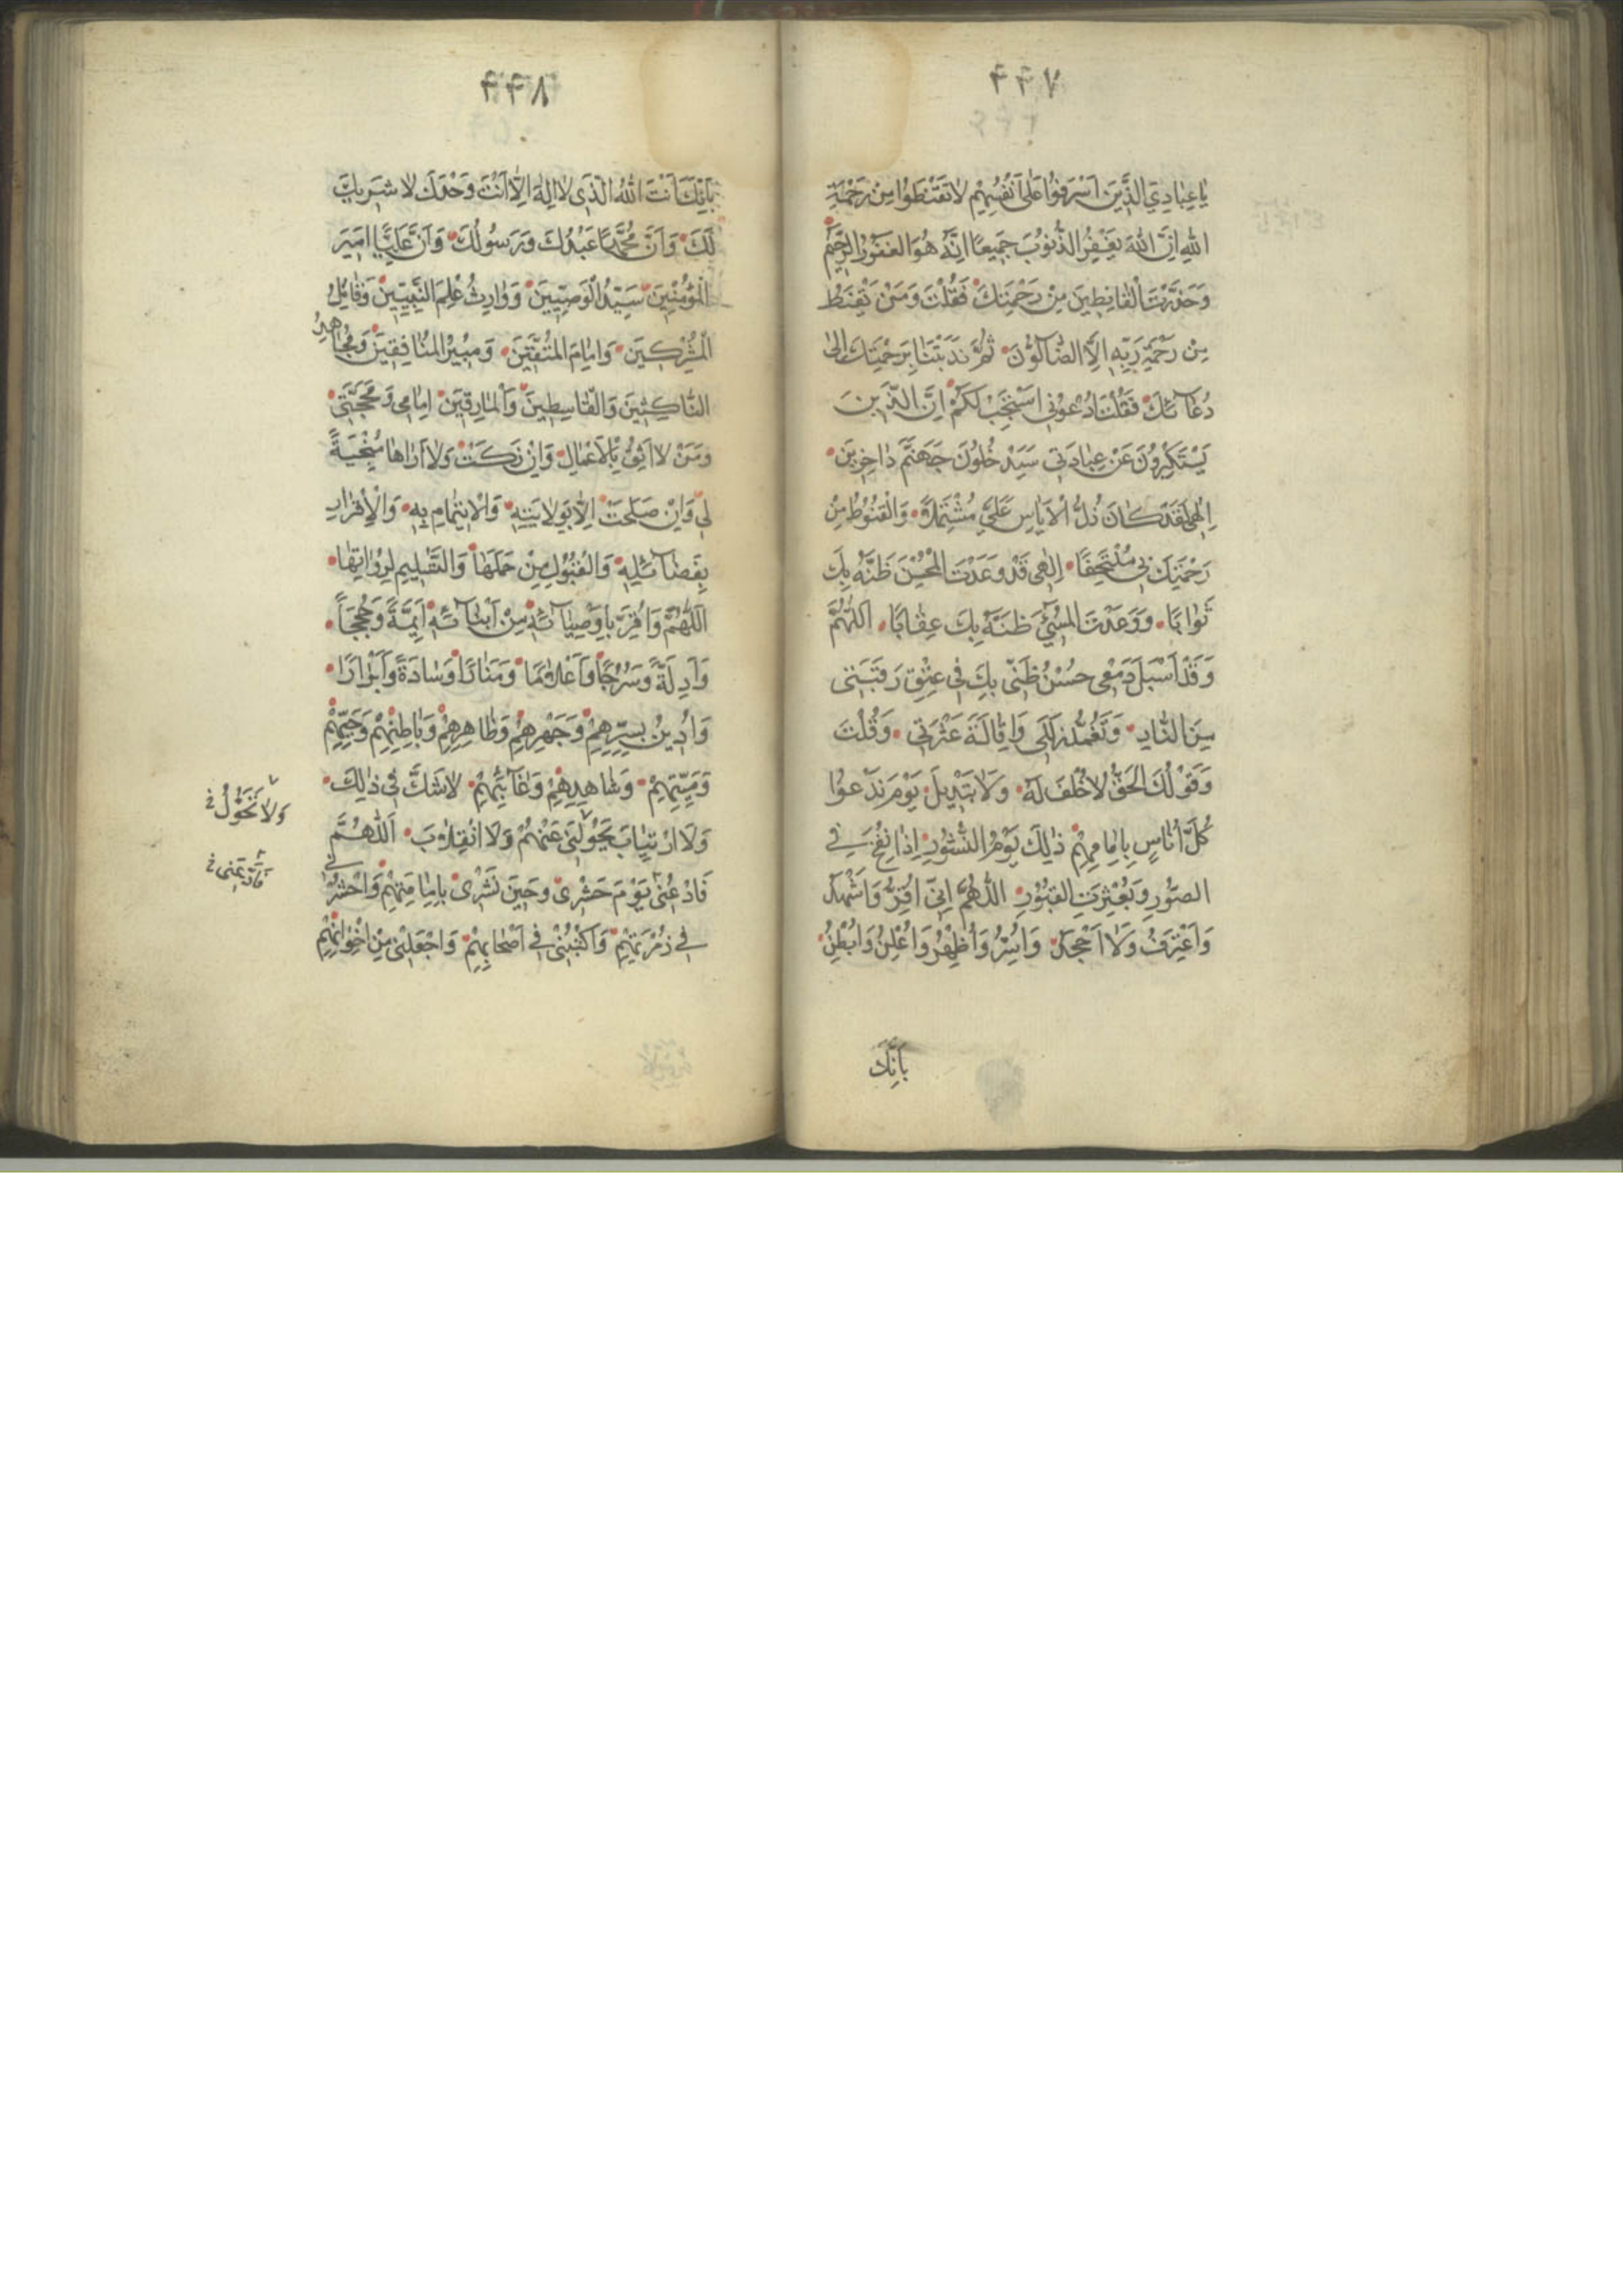 ۴۴۷
يَا عِبَادِيَ الَّذِينَ اَسْرَفُوا عَلىٰ اَنْفُسِهِمْ لَا تَقْنَطُوا مِنْ رَحْمَةِ
اللهِ اِنَّ اللهَ يَغْفِرُ الذُّنُوبَ جَمِيعًا اِنَّهُ هُوَ الغَفُورُ الرَّحِيمُ
وَحَذَّرْتَ الْقَانِطِينَ مِنْ رَحْمَتِكَ فَقُلْتَ وَمَنْ يَقْنَطُ
مِنْ رَحْمَةِ رَبِّهِ اِلَّا الضَّالُّونَ ثُمَّ نَدَبْتَنَا بِرَحْمَتِكَ اِلىٰ
دُعَائِكَ فَقُلْتَ ادْعُونِي اَسْتَجِبْ لَكُمْ اِنَّ الَّذِينَ
يَسْتَكْبِرُونَ عَنْ عِبَادَتِي سَيَدْخُلُونَ جَهَنَّمَ دَاخِرِينَ
اِلٰهِي لَقَدْ كَانَ ذُلُّ الْاَيَاسِ عَلَيَّ مُشْتَمِلًا وَالْقُنُوطُ مِنْ
رَحْمَتِكَ بِي مُلْتَحِفًا اِلٰهِي قَدْ وَعَدْتَ الْمُحْسِنَ ظَنَّهُ بِكَ
ثَوَابًا وَوَعَدْتَ الْمُسِيءَ ظَنَّهُ بِكَ عِقَابًا اَللّٰهُمَّ
وَقَدْ اَسْبَلَ دَمْعِي حُسْنُ ظَنِّي بِكَ فِي عِتْقِ رَقَبَتِي
مِنَ النَّارِ وَتَغَمُّدِ زَلَلِي وَاِقَالَةَ عَثْرَتِي وَقُلْتَ
وَقَوْلُكَ الْحَقُّ لَا خُلْفَ لَهُ وَلَا تَبْدِيلَ يَوْمَ نَدْعُوا
كُلَّ اُنَاسٍ بِاِمَامِهِمْ ذٰلِكَ يَوْمُ النُّشُورِ اِذَا نُفِخَ فِي
الصُّورِ وَبُعْثِرَتِ القُبُورِ اللّٰهُمَّ اِنِّي اُقِرُّ وَاَشْهَدُ
وَاَعْتَرِفُ وَلَا اَجْحَدُ وَاُسِرُّ وَاُظْهِرُ وَاُعْلِنُ وَاُبْطِنُ
بِاَنَّكَ
۴۴۸
بِاَنَّكَ اَنْتَ اللهُ الَّذِي لَا اِلٰهَ اِلَّا اَنْتَ وَحْدَكَ لَا شَرِيكَ
لَكَ وَاَنَّ مُحَمَّدًا عَبْدُكَ وَرَسُولُكَ وَاَنَّ عَلِيًّا اَمِيرَ
الْمُؤْمِنِينَ سَيِّدُ الْوَصِيِّينَ وَوَارِثُ عِلْمِ النَّبِيِّينَ وَقَاتِلُ
الْمُشْرِكِينَ وَاِمَامُ الْمُتَّقِينَ وَمُبِيرُ الْمُنَافِقِينَ وَمُجَاهِدُ
النَّاكِثِينَ وَالْقَاسِطِينَ وَالْمَارِقِينَ اِمَامِي وَمَحَجَّتِي
وَمَنْ لَا اَثِقُ بِالْاَعْمَالِ وَاِنْ زَكَتْ وَلَا اَرَاهَا مُنْجِيَةً
لِي وَاِنْ صَلَحَتْ اِلَّا بِوَلَايَتِهِ وَالْاِيتِمَامِ بِهِ وَالْاِقْرَارِ
بِفَضَائِلِهِ وَالْقُبُولِ مِنْ حَمَلَهَا وَالتَّسْلِيمِ لِرُوَاتِهَا
اَللّٰهُمَّ وَاُقِرُّ بِاَوْصِيَائِهِ مِنْ اَبْنَائِهِ اَئِمَّةً وَحُجَجًا
وَاَدِلَّةً وَسُرُجًا وَاَعْلَامًا وَمَنَارًا وَسَادَةً وَاَبْرَارًا
وَاَدِينُ بِسِرِّهِمْ وَجَهْرِهِمْ وَظَاهِرِهِمْ وَبَاطِنِهِمْ وَحَيِّهِمْ
وَمَيِّتِهِمْ وَشَاهِدِهِمْ وَغَائِبِهِمْ لَا شَكَّ فِي ذٰلِكَ
وَلَا ارْتِيَابَ يُحَوِّلُنِي عَنْهُمْ وَلَا انْقِلَابَ اَللّٰهُمَّ
فَادْعُنِي يَوْمَ حَشْرِي وَحِينَ نَشْرِي بِاِمَامَتِهِمْ وَاحْشُرْنِي
فِي زُمْرَتِهِمْ وَاكْتُبْنِي فِي اَصْحَابِهِمْ وَاجْعَلْنِي مِنْ اِخْوَانِهِمْ
وَلَا تَحَوُّلُ خ